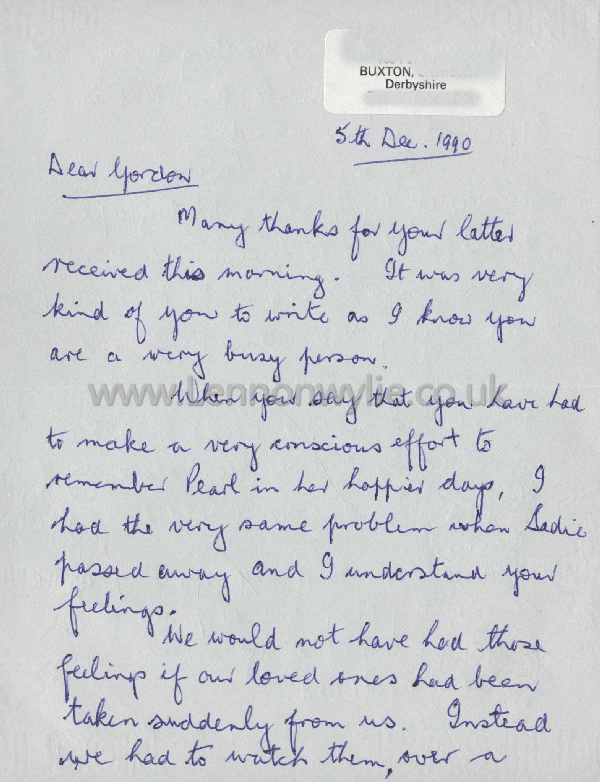 BUXTON,
Derbyshire
5th Dec. 1990
Dear Gordon
Many thanks for your letter
received this morning. It was very
kind of you to write as I know you
are a very busy person.
www.Lennonwylie.co.uk
When you say that you have had
to make a very conscious effort to
remember Pearl in her happier days, I
had the very same problem when Sadie
passed away and I understand your
feelings.
We would not have had those
feelings if our loved ones had been
taken suddenly from us. Instead
we had to watch them, over a